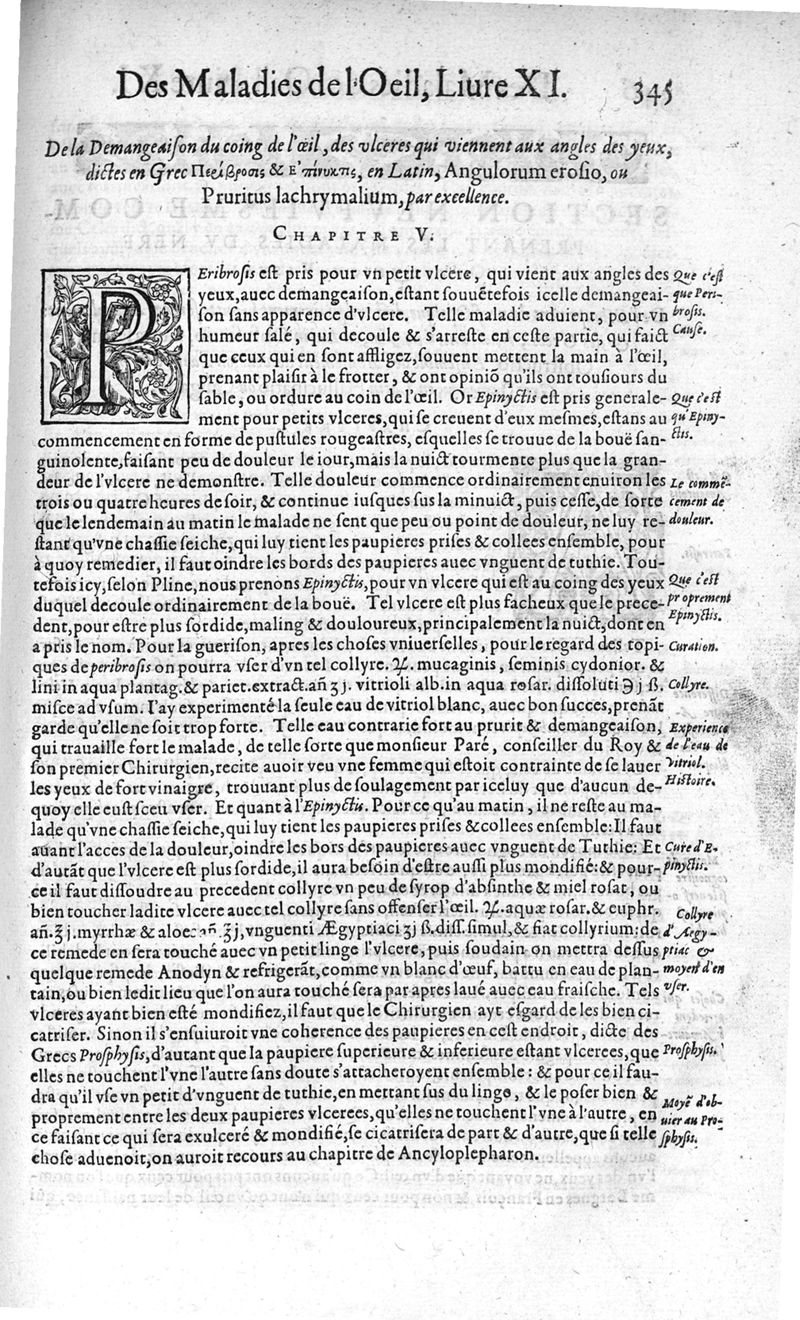 Des Maladies de l'Oeil, Liure XI. 345
De la Demangeaiſon du coing de l'œil, des vlceres qui viennent aux angles des yeux,
dictes en Grec Περίβροσις & Ε'πίνυκτις, en Latin, Angulorum eroſio, ou
Pruritus lachrymalium, par excellence.
CHAPITRE V.
PEribroſis eſt pris pour vn petit vlcere, qui vient aux angles des
yeux, auec demangeaiſon, eſtant ſouuẽtefois icelle demangeai-
ſon ſans apparence d'vlcere. Telle maladie aduient, pour vn
humeur ſalé, qui decoule & s'arreſte en ceſte partie, qui faict
que ceux qui en ſont affligez, ſouuent mettent la main à l'œil,
prenant plaiſir à le frotter, & ont opiniõ qu'ils ont touſiours du
ſable, ou ordure au coin de l'œil. Or Epinyctis eſt pris generale-
ment pour petits vlceres, qui ſe creuent d'eux meſmes, eſtans au
commencement en forme de puſtules rougeaſtres, eſquelles ſe trouue de la bouë ſan-
guinolente, faiſant peu de douleur le iour, mais la nuict tourmente plus que la gran-
deur de l'vlcere ne demonſtre. Telle douleur commence ordinairement enuiron les
trois ou quatre heures de ſoir, & continue iuſques ſus la minuict, puis ceſſe, de ſorte
que le lendemain au matin le malade ne ſent que peu ou point de douleur, ne luy re-
ſtant qu'vne chaſſie ſeiche, qui luy tient les paupieres priſes & collees enſemble, pour
à quoy remedier, il faut oindre les bords des paupieres auec vnguent de tuthie. Tou-
tefois icy, ſelon Pline, nous prenons Epinyctis, pour vn vlcere qui eſt au coing des yeux
duquel decoule ordinairement de la bouë. Tel vlcere eſt plus facheux que le prece-
dent, pour eſtre plus ſordide, maling & douloureux, principalement la nuict, dont en
a pris le nom. Pour la gueriſon, apres les choſes vniuerſelles, pour le regard des topi-
ques de peribroſis on pourra vſer d'vn tel collyre. ℞. mucaginis, ſeminis cydonior. &
lini in aqua plantag. & pariet. extract. añ ʒ j. vitrioli alb. in aqua roſar. diſſoluti ℈ j ß.
miſce ad vſum. I'ay experimenté la ſeule eau de vitriol blanc, auec bon ſucces, prenãt
garde qu'elle ne ſoit trop forte. Telle eau contrarie fort au prurit & demangeaiſon,
qui trauaille fort le malade, de telle ſorte que monſieur Paré, conſeiller du Roy &
ſon premier Chirurgien, recite auoir veu vne femme qui eſtoit contrainte de ſe lauer
les yeux de fort vinaigre, trouuant plus de ſoulagement par iceluy que d'aucun de-
quoy elle euſt ſceu vſer. Et quant à l'Epinyctis. Pour ce qu'au matin, il ne reſte au ma-
lade qu'vne chaſſie ſeiche, qui luy tient les paupieres priſes & collees enſemble: Il faut
auant l'acces de la douleur, oindre les bors des paupieres auec vnguent de Tuthie: Et
d'autãt que l'vlcere eſt plus ſordide, il aura beſoin d'eſtre auſſi plus mondifié: & pour-
ce il faut diſſoudre au precedent collyre vn peu de ſyrop d'abſinthe & miel roſat, ou
bien toucher ladite vlcere auec tel collyre ſans offenſer l'œil. ℞. aquæ roſar. & euphr.
añ. ℥ j. myrrhæ & aloes añ. ʒ j, vnguenti Ægyptiaci ʒ j ß. diſſ. ſimul, & fiat collyrium: de
ce remede en ſera touché auec vn petit linge l'vlcere, puis ſoudain on mettra deſſus
quelque remede Anodyn & refrigerãt, comme vn blanc d'œuf, battu en eau de plan-
tain, ou bien ledit lieu que l'on aura touché ſera par apres laué auec eau fraiſche. Tels
vlceres ayant bien eſté mondifiez, il faut que le Chirurgien ayt eſgard de les bien ci-
catriſer. Sinon il s'enſuiuroit vne coherence des paupieres en ceſt endroit, dicte des
Grecs Proſphyſis, d'autant que la paupiere ſuperieure & inferieure eſtant vlcerees, que
elles ne touchent l'vne l'autre ſans doute s'attacheroyent enſemble: & pour ce il fau-
dra qu'il vſe vn petit d'vnguent de tuthie, en mettant ſus du linge, & le poſer bien &
proprement entre les deux paupieres vlcerees, qu'elles ne touchent l'vne à l'autre, en
ce faiſant ce qui ſera exulceré & mondifié, ſe cicatriſera de part & d'autre, que ſi telle
choſe aduenoit, on auroit recours au chapitre de Ancyloplepharon.
Que c'eſt
que Peri-
broſis.
Cauſe.
Que c'eſt
qu'Epiny-
ctis.
Le commẽ-
cement de
douleur.
Que c'eſt
proprement
Epinyctis.
Curation.
Collyre.
Experience
de l'eau de
vitriol.
Hiſtoire.
Cure d'E-
pinyctis.
Collyre
d'Ægy-
ptiac &
moyen d'en
vſer.
Proſphyſis.
Moyẽ d'ob-
uier au Pro-
ſphyſis.